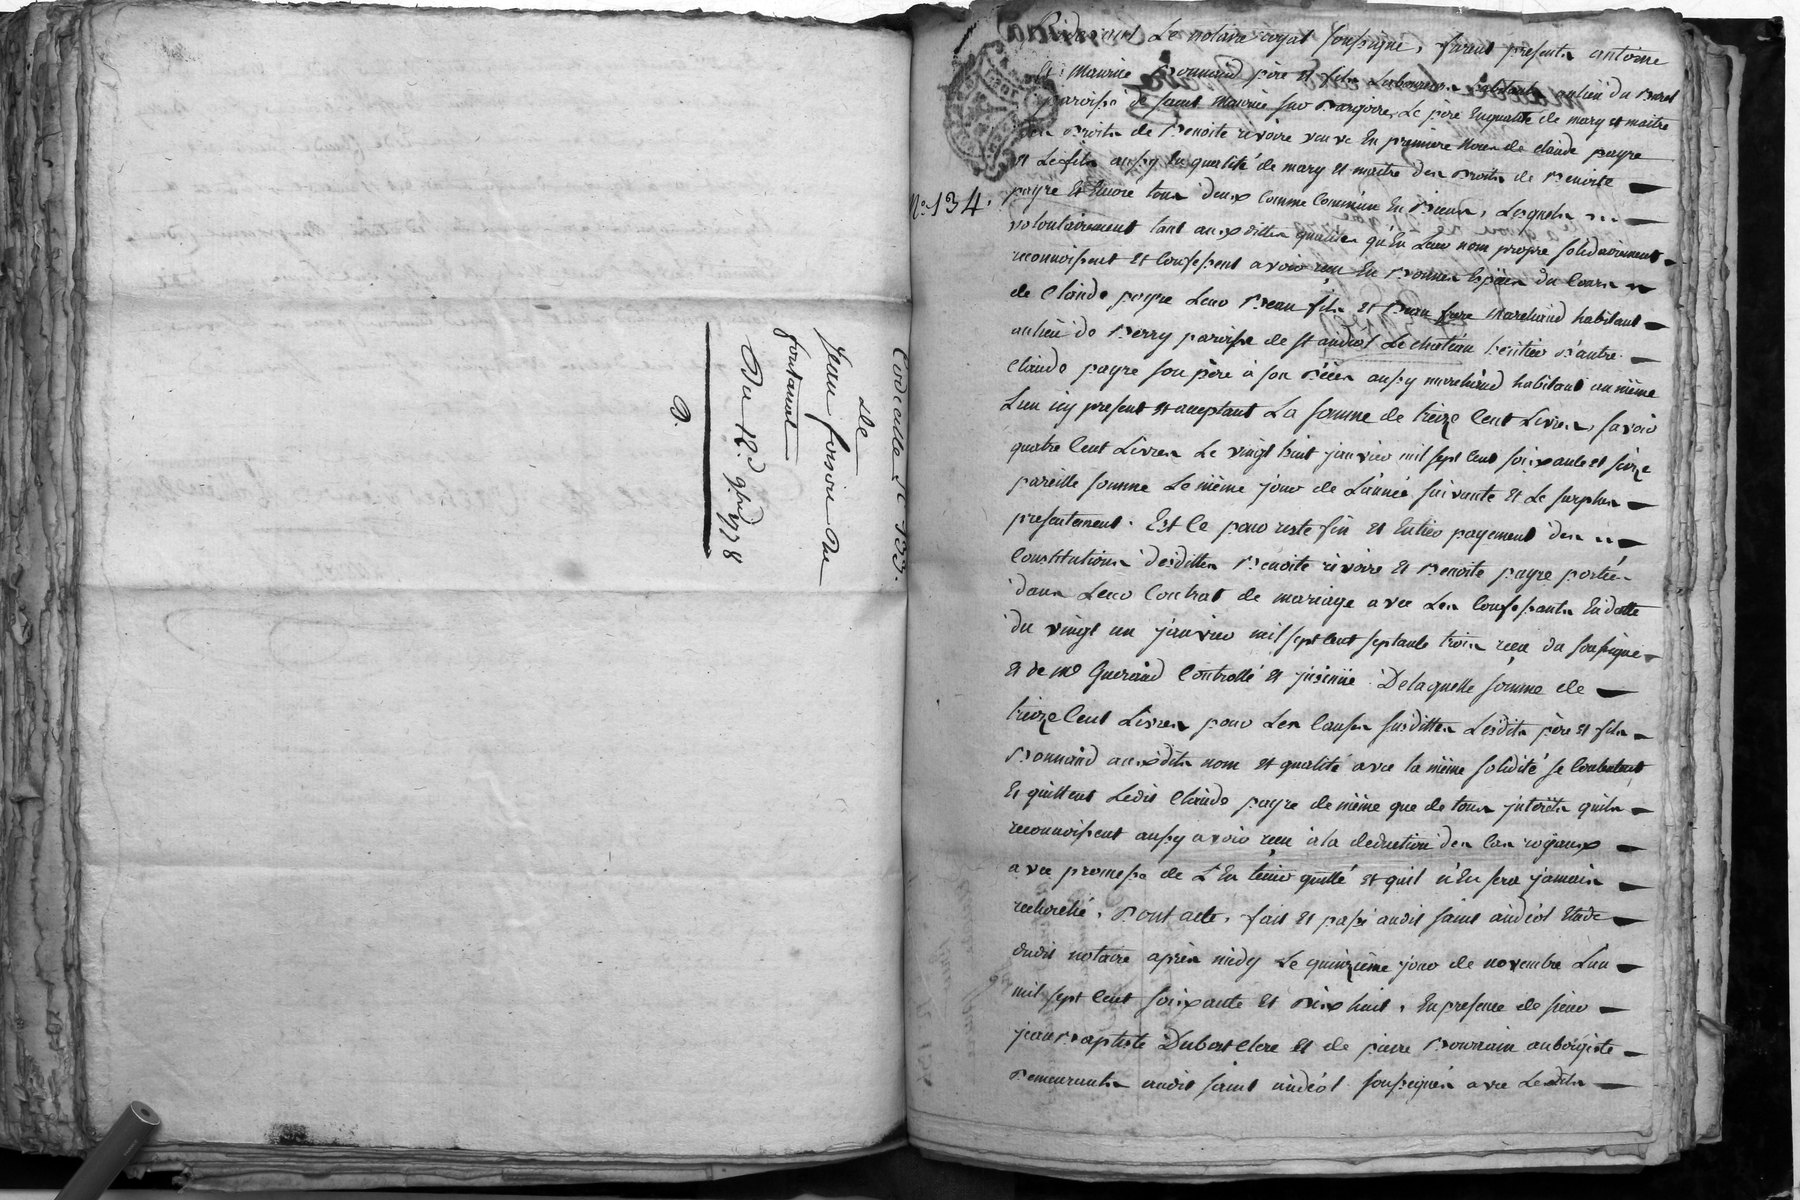 Codicille Ct 133.
De
Jean foison du
fontanat
Du 12e 9bre 1778
D.
Pardevant Le notaire royal soussigné, furent presents antoine
et maurice Bonnaud père et fils Laboureurs habitants au lieu du
paroisse de saint maurice sur Dargoire, Le père En qualité de mary et maitre
des Droits de Benoite rivoire veuve En première Noces de claude payre
et Le fils aussy En qualité de mary et maitre des Droits de Benoite
N.º 134.
payre Et Encore tous Deux Comme Commune En Biens, Lesquels
volontairement tant auxdittes qualites qu'En Leur nom propre solidairement
reconnoissent et Confessent avoir reçu En Bonnes Espèces du Cours
de Claude payre Leur Beau fils et Beau frère marchand habitant
au lieu de Berry paroisse de st andéol Le chateau héritier D'autre
Claude payre son père à son Décès aussy marchand habitant au même
Lieu icy present et acceptant La somme de treize Cent Livres, savoir
quatre Cent Livres Le vingt huit janvier mil sept Cent soixante et seize
pareille somme Le même jour de L'année suivante et Le surplus
presentement. Est Ce pour reste fin et Entier payement des
Constitutions desdittes Benoite rivoire et Benoite payre portées
dans Leur Contrat de mariage avec Les Confessants En datte
du vingt un janvier mil sept cent septante trois reçu du soussigné
et de me Gueraud Controllé et jnsinüé. De laquelle somme de
treize Cent Livres pour Les Causes susdittes Lesdits père et fils
Bonnaud auxdits nom et qualité avec la même solidité se Contentent
Et quittent Ledit Claude payre de même que de tous jnterêts quils
reconnoissent aussy avoir reçu à la deduction des Cas royaux
avec promesse de L'En tenir quitté et quil n'En sera jamais
recherché, Dont acte, fait et passé audit saint andéol Etude
dudit notaire après midy Le quinzième jour de novembre L'an
mil sept Cent soixante et Dix huit, En presence de sieur
jean Baptiste Dubost clerc et de pierre Bourrain aubergiste
Demeurants audit saint andéol soussignés avec Lesdits